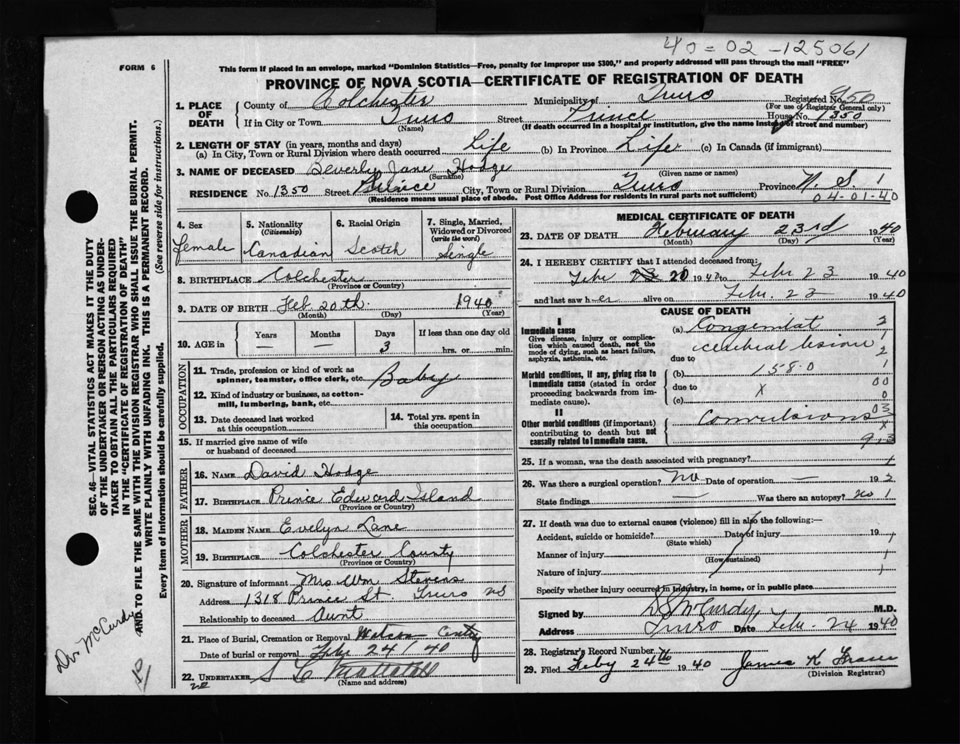 40=02-125061
FORM 6
This form if placed in an envelope, marked "Dominion Statistics—Free, penalty for improper use $300," and properly addressed will pass through the mail "FREE"
PROVINCE OF NOVA SCOTIA—CERTIFICATE OF REGISTRATION OF DEATH
SEC. 46—VITAL STATISTICS ACT MAKES IT THE DUTY
OF THE UNDERTAKER OR PERSON ACTING AS UNDER-
TAKER TO OBTAIN ALL THE PARTICULARS REQUIRED
IN THE "CERTIFICATE OF REGISTRATION OF DEATH"
AND TO FILE THE SAME WITH THE DIVISION REGISTRAR WHO SHALL ISSUE THE BURIAL PERMIT.
WRITE PLAINLY WITH UNFADING INK. THIS IS A PERMANENT RECORD.
Every item of information should be carefully supplied. (See reverse side for instructions.)
Dr. McCurdy
1. PLACE OF DEATH
County of Colchester Municipality of Truro Registered No. 950
(For use of Registrar General only)
If in City or Town Truro Street Prince House No. 1350
(Name) (If death occurred in a hospital or institution, give the name instead of street and number)
2. LENGTH OF STAY (in years, months and days)
(a) In City, Town or Rural Division where death occurred Life (b) In Province Life (c) In Canada (if immigrant)
3. NAME OF DECEASED Beverly Jane Hodge
(Surname) (Given name or names)
RESIDENCE No. 1350 Street Prince City, Town or Rural Division Truro Province N. S. 1
(Residence means usual place of abode. Post Office Address for residents in rural parts not sufficient) 04-01-40
4. Sex Female
5. Nationality (Citizenship) Canadian
6. Racial Origin Scotch
7. Single, Married, Widowed or Divorced (write the word) Single
8. BIRTHPLACE Colchester
(Province or County)
9. DATE OF BIRTH Feb. 20th. 1940
(Month) (Day) (Year)
10. AGE in Years — Months — Days 3 If less than one day old hrs. or min.
OCCUPATION
11. Trade, profession or kind of work as spinner, teamster, office clerk, etc. Baby
12. Kind of industry or business, as cotton-mill, lumbering, bank, etc.
13. Date deceased last worked at this occupation
14. Total yrs. spent in this occupation
15. If married give name of wife or husband of deceased
FATHER
16. NAME David Hodge
17. BIRTHPLACE Prince Edward Island
(Province or County)
MOTHER
18. MAIDEN NAME Evelyn Lane
19. BIRTHPLACE Colchester County
(Province or County)
20. Signature of informant Mrs Wm Stevens
Address 1318 Prince St. Truro NS
Relationship to deceased Aunt
21. Place of Burial, Cremation or Removal Watson
Date of burial or removal Feb 24/40
22. UNDERTAKER
(Name and address)
MEDICAL CERTIFICATE OF DEATH
23. DATE OF DEATH February 23rd 1940
(Month) (Day) (Year)
24. I HEREBY CERTIFY that I attended deceased from:
Febr 20 1940 to Febr 23 1940
and last saw her alive on Febr. 23 1940
CAUSE OF DEATH
I
Immediate cause (a) Congenital 2
Give disease, injury or complication which caused death, not the mode of dying, such as heart failure, asphyxia, asthenia, etc.
cerebral lesion
due to 2
Morbid conditions, if any, giving rise to immediate cause (stated in order proceeding backwards from immediate cause).
(b) 158.0 1
due to X 00
(c) 0
II
Other morbid conditions (if important) contributing to death but not causally related to immediate cause.
Convulsions 03
X
9.3
25. If a woman, was the death associated with pregnancy? 1
26. Was there a surgical operation? no Date of operation — 19 2
State findings — Was there an autopsy? no 1
27. If death was due to external causes (violence) fill in also the following:—
Accident, suicide or homicide? Date of injury 19 1
(State which)
Manner of injury 1
(How sustained)
Nature of injury 1
Specify whether injury occurred in industry, in home, or in public place
Signed by D S McCurdy M.D.
Address Truro Date Feb. 24 1940
28. Registrar's Record Number
29. Filed Feby 24th 1940 James K Fraser
(Division Registrar)